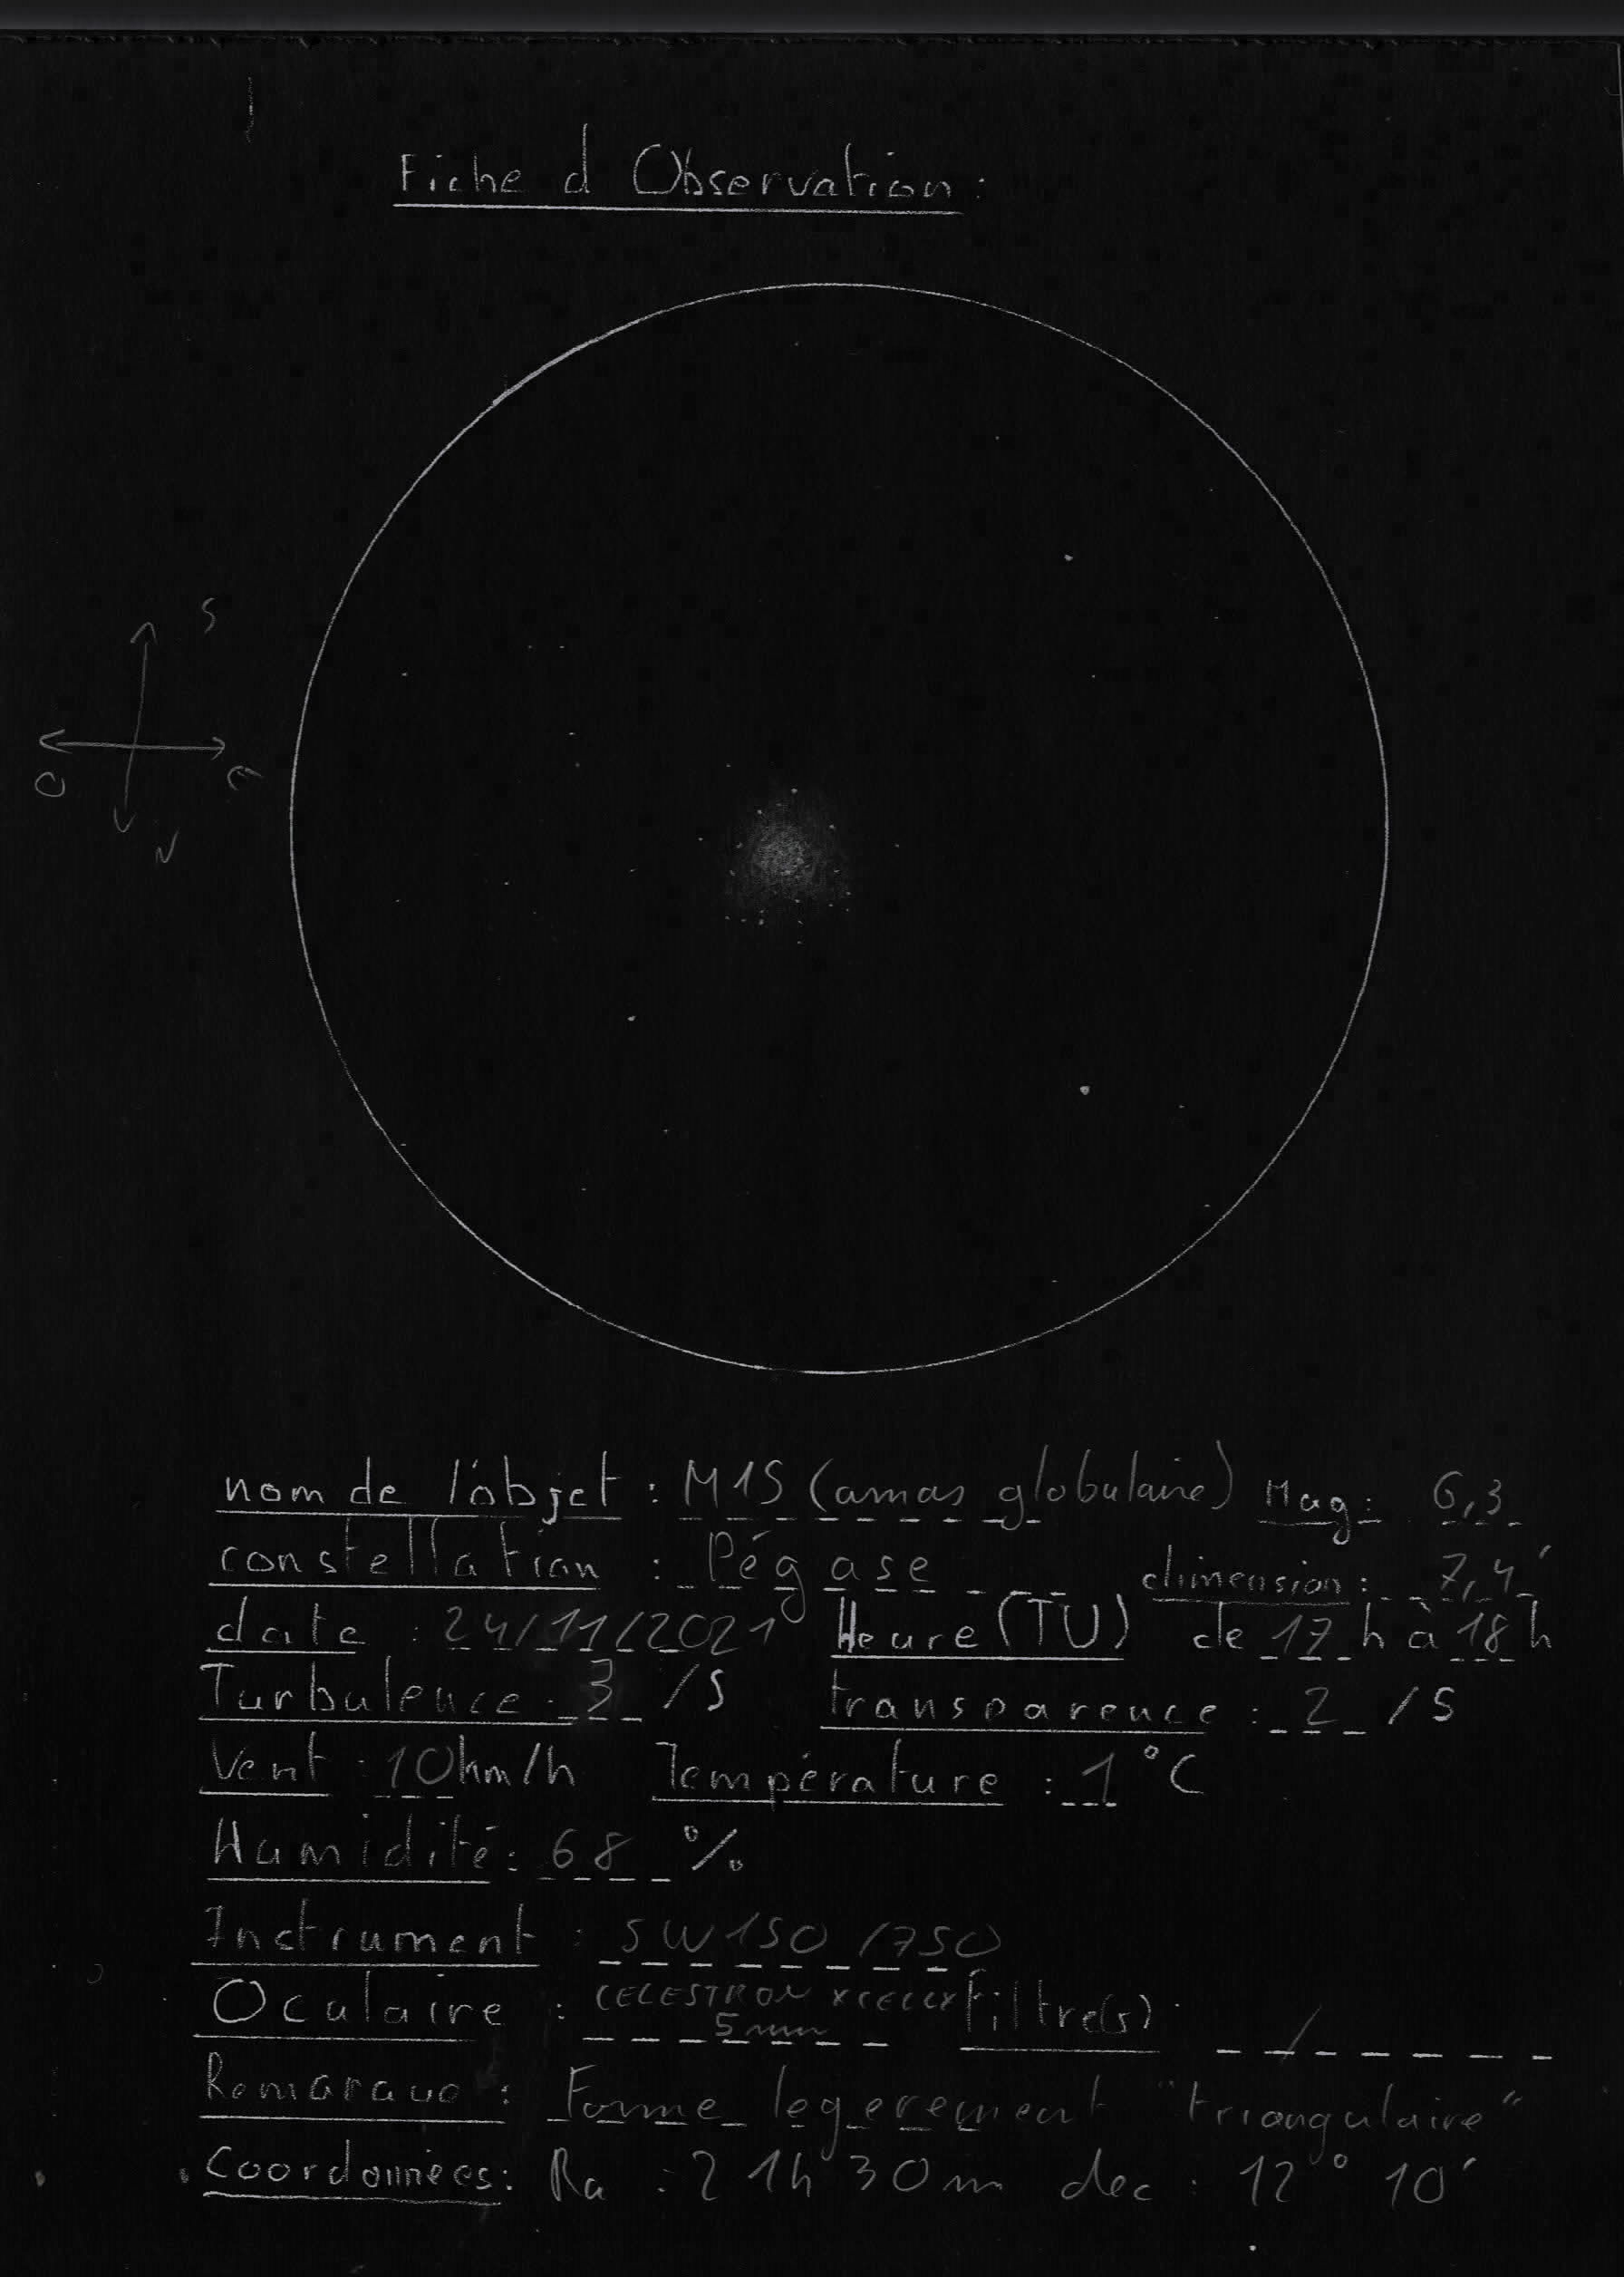 Fiche d Observation :
S
O E
N
nom de l'objet : M15 (amas globulaire) Mag : 6,3
constellation : Pégase dimension : 7,4'
date : 24/11/2021 Heure (TU) de 17 h à 18 h
Turbulence : 3 /5 transparence : 2 /5
Vent : 10 km/h Température : 1 °C
Humidité : 68 %
Instrument : SW 150 /750
Oculaire : CELESTRON XCELLX filtre(s) : /
5mm
Remarque : Forme legerement "triangulaire"
Coordonnées : Ra : 21h 30m dec : 12° 10'